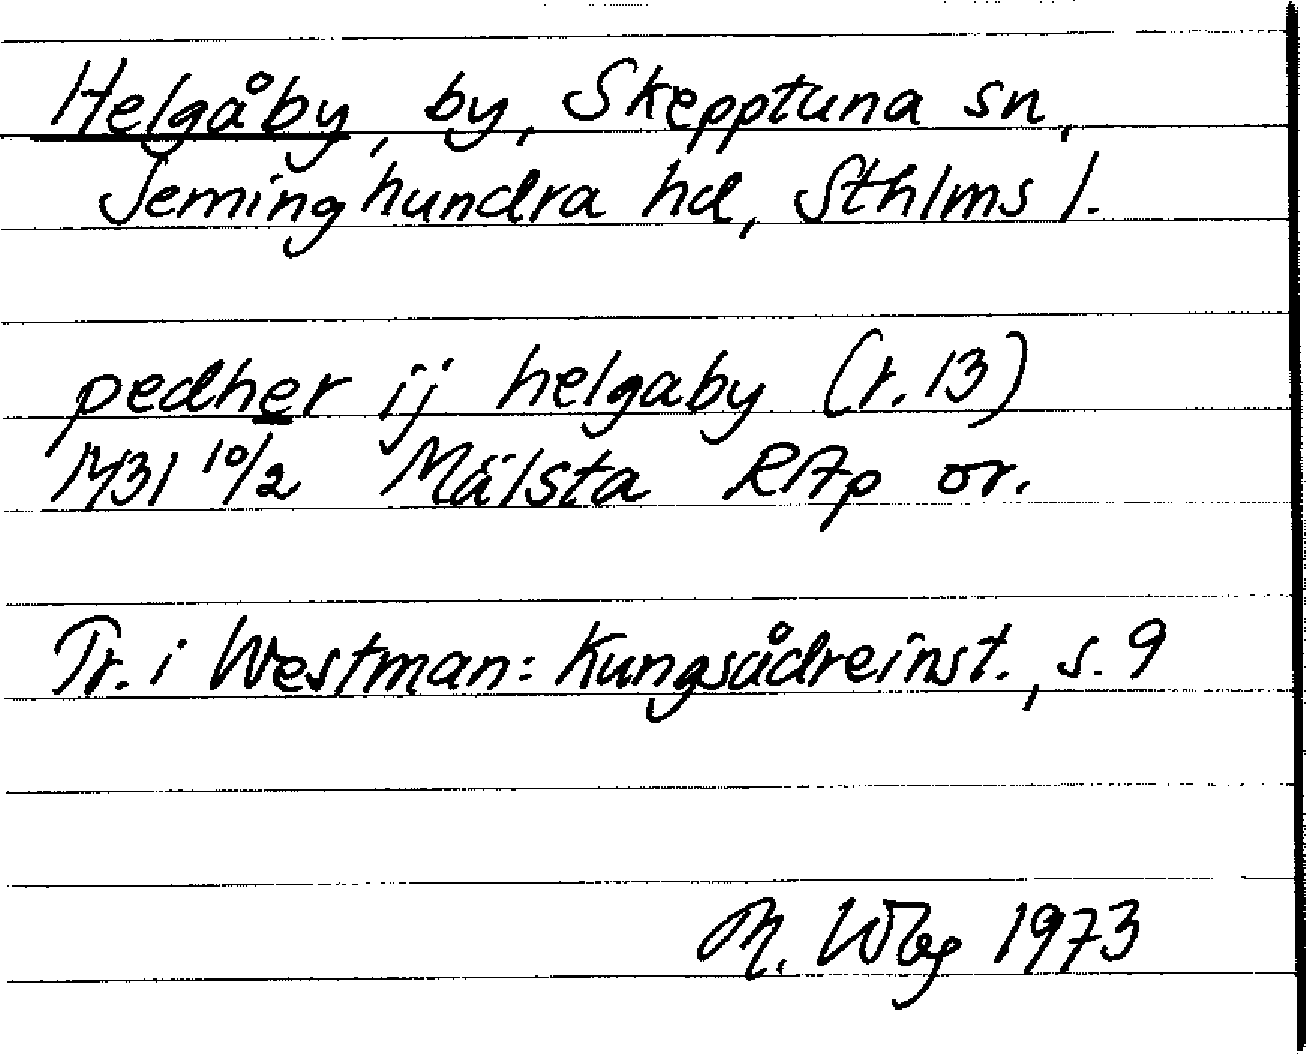 Helgåby, by, Skepptuna sn,
Seminghundra hd, Sthlms l.
pedher ij helgaby (r. 13)
1431 10/2 Mälsta RAp or.
Tr. i Westman: Kungsådreinst., s. 9
M. Wbg 1973